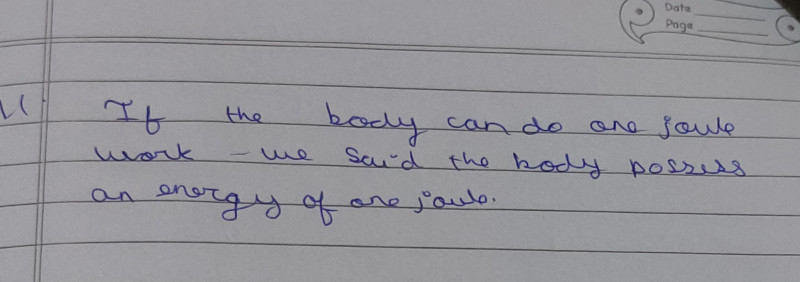 Date
Page
If the body can do one joule
work - we said the body possess
an energy of one joule.